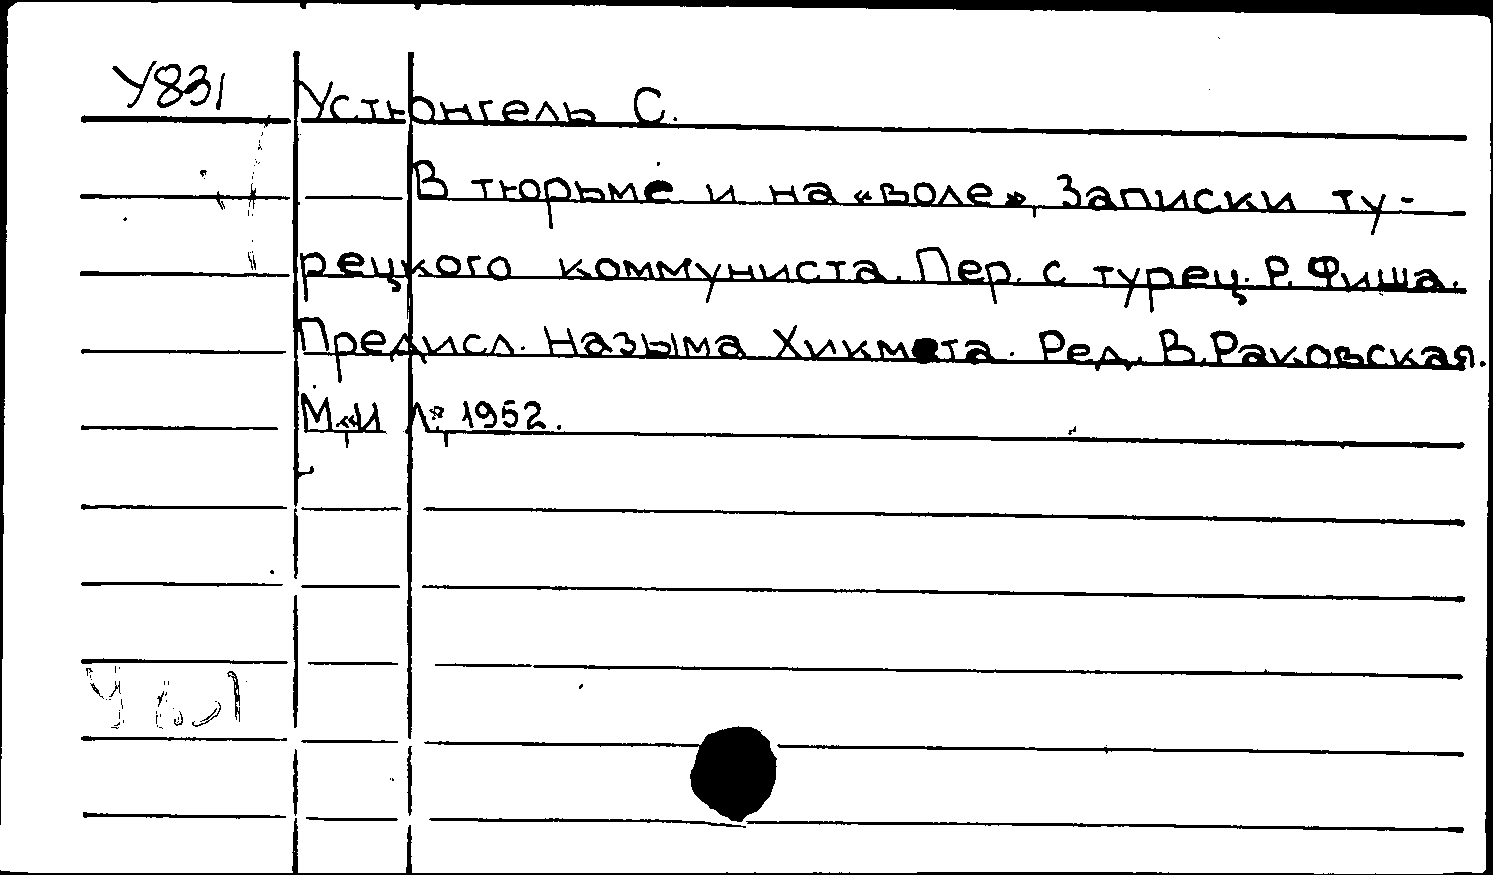 У831
Устюнгель С.
В тюрьме и на «воле», Записки ту-
рецкого коммуниста. Пер. с турец. Р. Фиша.
Предисл. Назыма Хикмета. Ред. В. Раковская.
М., «ИЛ», 1952.